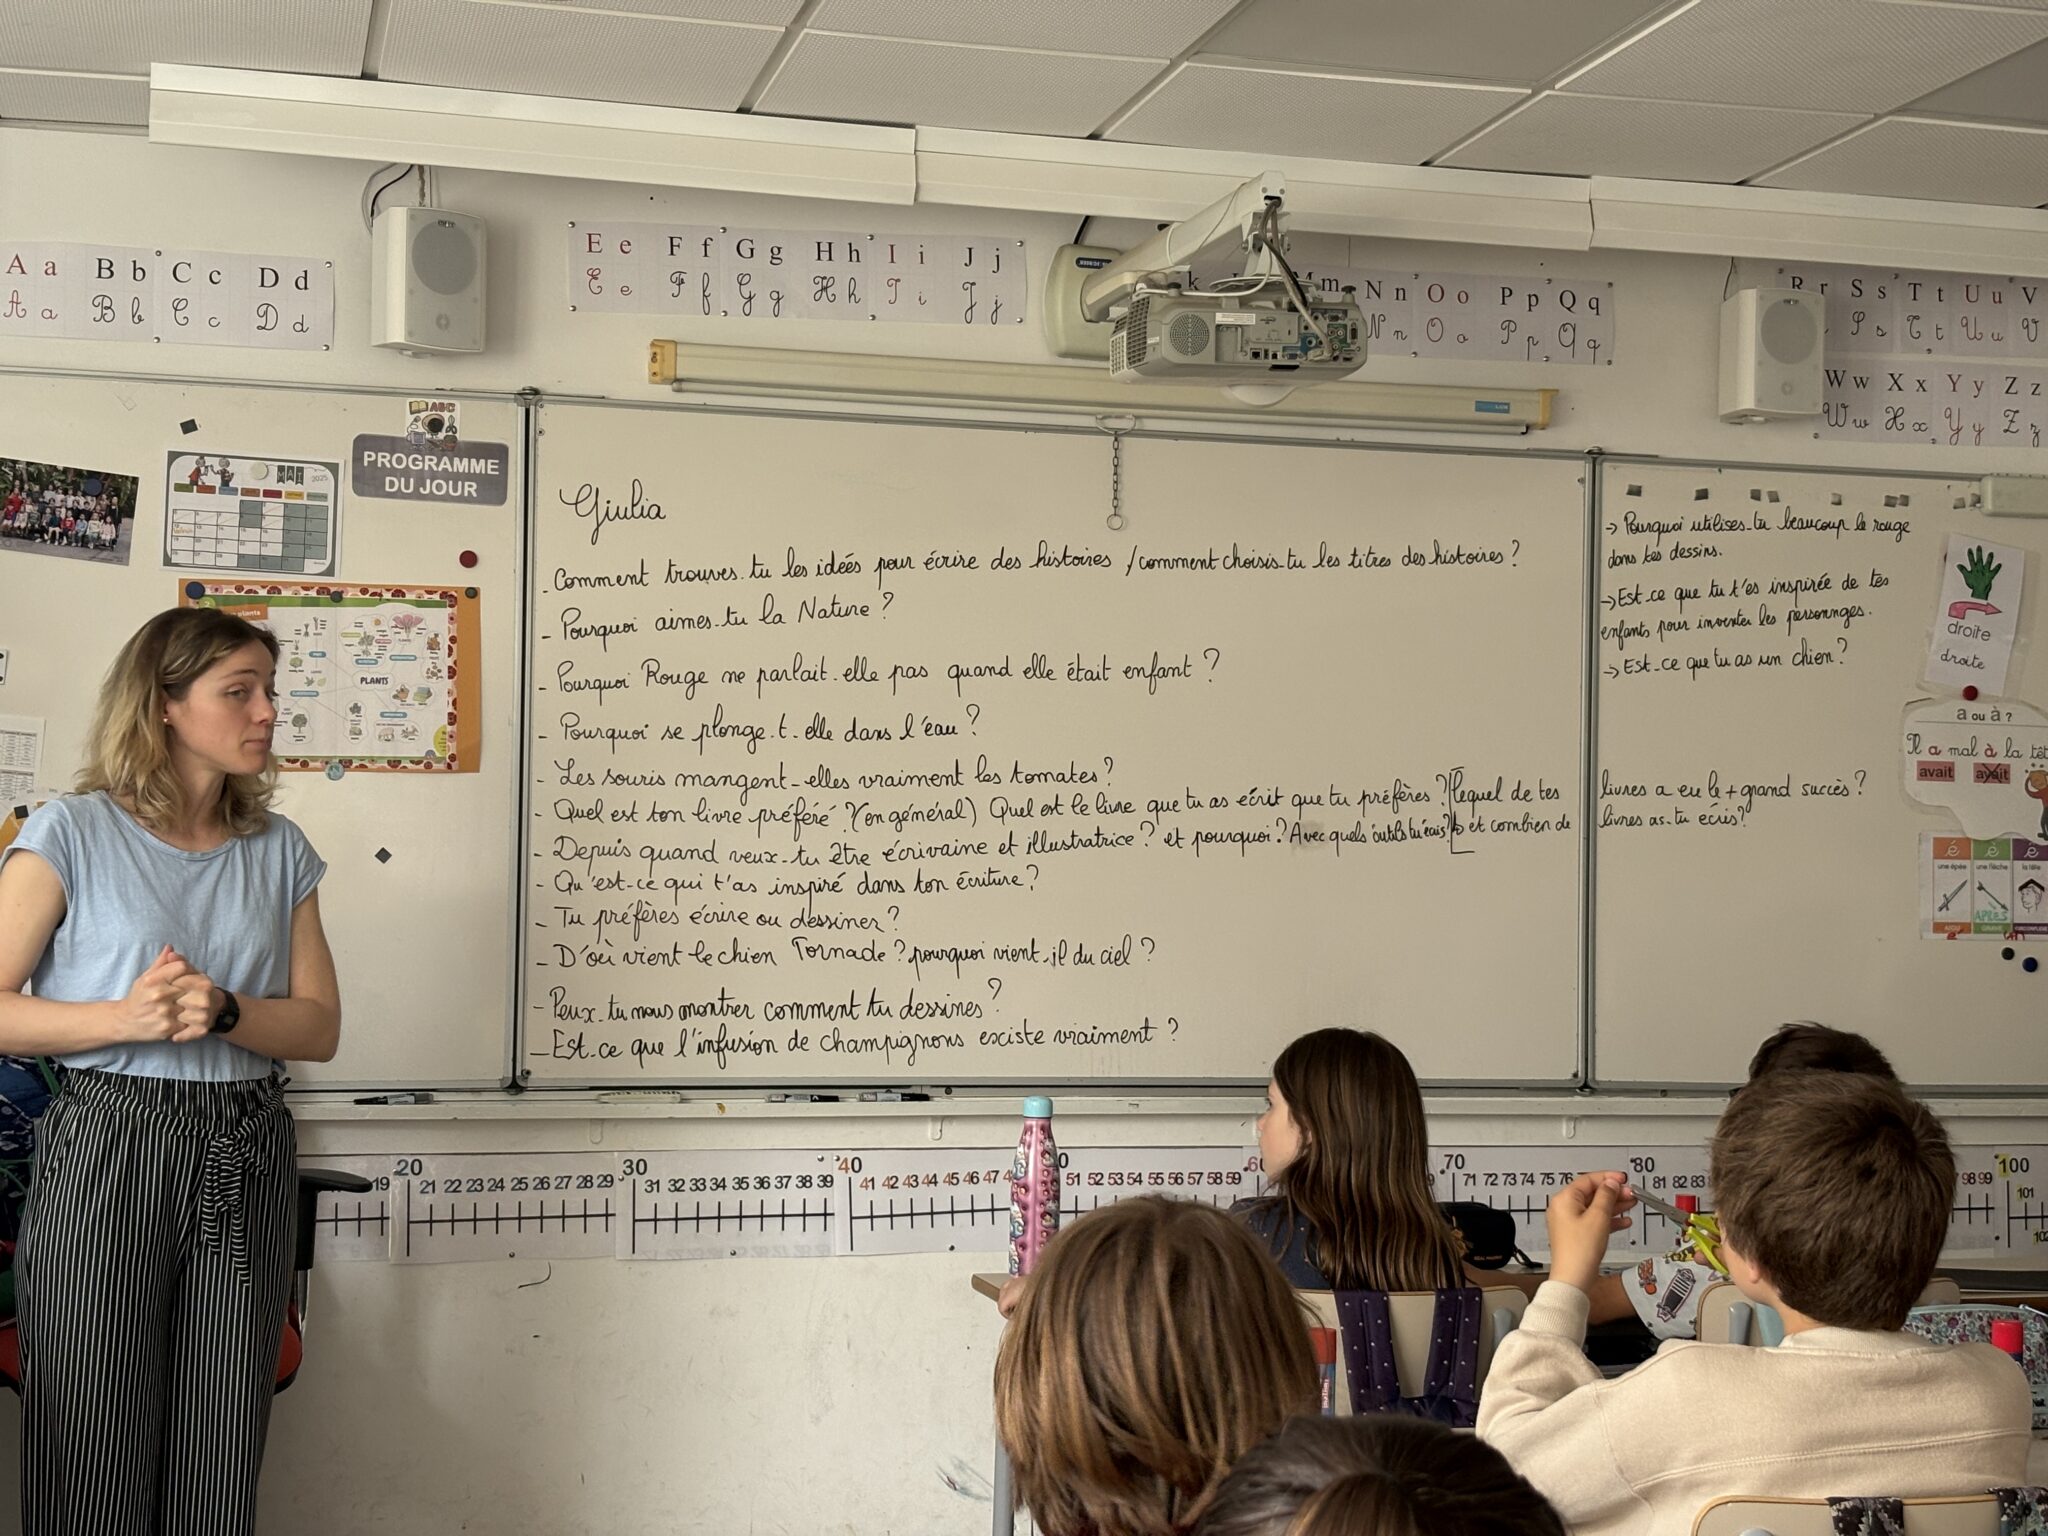 A a B b C c D d
A a B b C c D d
E e F f G g H h I i J j
E e F f G g H h I i J j
N n O o P p Q q
N n O o P p Q q
R r S s T t U u V
S s T t U u V
W w X x Y y Z z
W w X x Y y Z z
ABC
PROGRAMME
DU JOUR
MAI
2025
PLANTS
Giulia
- Comment trouves-tu les idéés pour écrire des histoires / comment choisis-tu les titres des histoires ?
- Pourquoi aimes-tu la Nature ?
- Pourquoi Rouge ne parlait-elle pas quand elle était enfant ?
- Pourquoi se plonge-t-elle dans l'eau ?
- Les souris mangent-elles vraiment les tomates ?
- Quel est ton livre préféré ? (en général) Quel est le livre que tu as écrit que tu préfères ? lequel de tes livres a eu le + grand succès ?
- Depuis quand veux-tu être écrivaine et illustratrice ? et pourquoi ? Avec quels outils tu écris ? et combien de livres as-tu écris ?
- Qu'est-ce qui t'as inspiré dans ton écriture ?
- Tu préfères écrire ou dessiner ?
- D'où vient le chien Tornade ? pourquoi vient-il du ciel ?
- Peux-tu nous montrer comment tu dessines ?
- Est-ce que l'infusion de champignons existe vraiment ?
→ Pourquoi utilises-tu beaucoup le rouge
dans tes dessins.
→ Est-ce que tu t'es inspirée de tes
enfants pour inventer les personnages.
→ Est-ce que tu as un chien ?
droite
droite
a ou à ?
Il a mal à la têt
avait avait
é è ê
une épée une flèche la tête
APRÈS
AIGU GRAVE CIRCONFLEXE
19 20 21 22 23 24 25 26 27 28 29 30 31 32 33 34 35 36 37 38 39 40 41 42 43 44 45 46 47 51 52 53 54 55 56 57 58 59 70 71 72 73 74 75 76 80 81 82 83 98 99 100 101